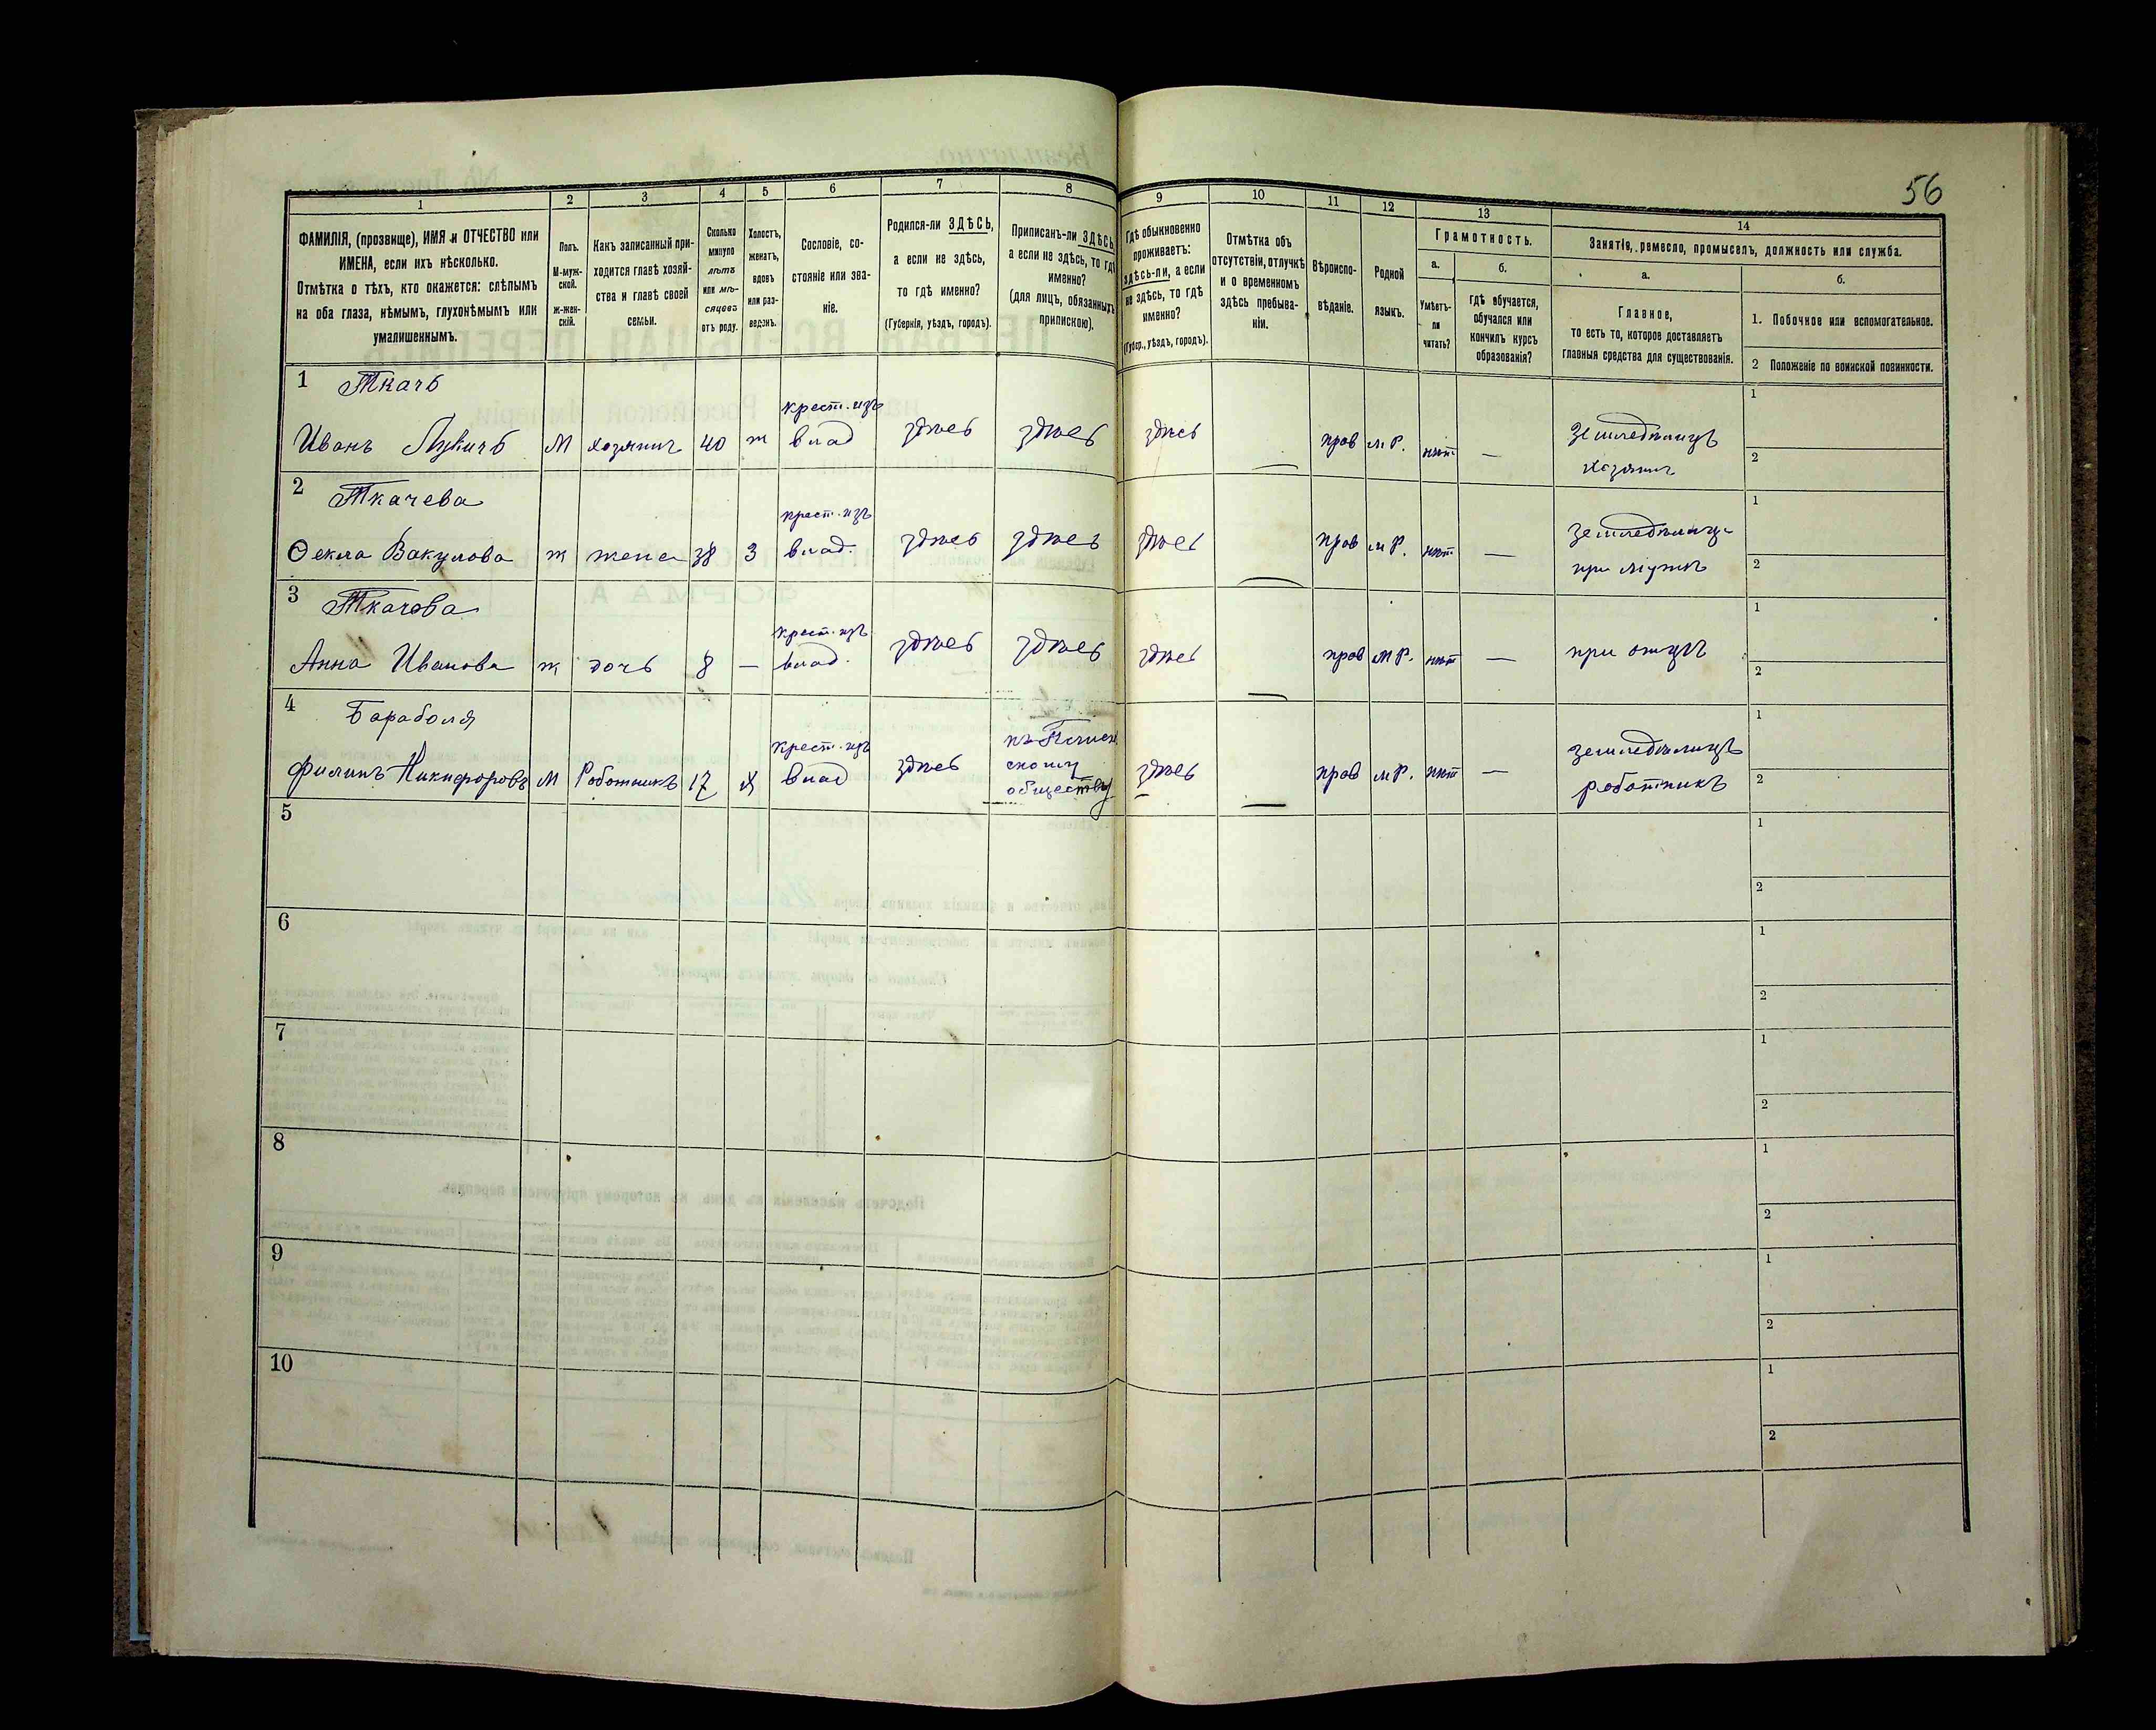 56
1 2 3 4 5 6 7 8 9 10 11 12 13 14
ФАМИЛІЯ, (прозвище), ИМЯ и ОТЧЕСТВО или
ИМЕНА, если ихъ нѣсколько.
Отмѣтка о тѣхъ, кто окажется: слѣпымъ
на оба глаза, нѣмымъ, глухонѣмымъ или
умалишеннымъ.
Полъ.
М-муж-
ской.
Ж-жен-
скій.
Какъ записанный при-
ходится главѣ хозяй-
ства и главѣ своей
семьи.
Сколько
минуло
лѣтъ
или мѣ-
сяцевъ
отъ роду.
Холостъ,
женатъ,
вдовъ
или раз-
веденъ.
Сословіе, со-
стояніе или зва-
ніе.
Родился-ли ЗДѢСЬ,
а если не здѣсь,
то гдѣ именно?
(Губернія, уѣздъ, городъ).
Приписанъ-ли ЗДѢСЬ,
а если не здѣсь, то гдѣ
именно?
(для лицъ, обязанныхъ
припискою).
Гдѣ обыкновенно
проживаетъ:
здѣсь-ли, а если
не здѣсь, то гдѣ
именно?
(Губер., уѣздъ, городъ).
Отмѣтка объ
отсутствіи, отлучкѣ
и о временномъ
здѣсь пребыва-
ніи.
Вѣроиспо-
вѣданіе.
Родной
языкъ.
Грамотность.
а.
Умѣетъ-
ли
читать?
б.
гдѣ обучается,
обучался или
кончилъ курсъ
образованія?
Занятіе, ремесло, промыселъ, должность или служба.
а.
Главное,
то есть то, которое доставляетъ
главныя средства для существованія.
б.
1. Побочное или вспомогательное.
2 Положеніе по воинской повинности.
1 Ткачъ
Иванъ Лукичъ М хозяинъ 40 ж крест. изъ влад здѣсь здѣсь здѣсь — прав м Р. нѣт — земледѣлецъ хозяинъ 1 2
2 Ткачева
Ѳекла Вакулова ж жена 38 з крест. изъ влад. здѣсь здѣсь здѣсь — прав м Р. нѣт — земледѣлицъ при мужѣ 1 2
3 Ткачова
Анна Иванова ж дочь 8 — крест. изъ влад. здѣсь здѣсь здѣсь — прав м Р. нѣт — при отцѣ 1 2
4 Бараболя
Филипъ Никифоровъ М Работникъ 17 х крест. изъ влад здѣсь скому обществу здѣсь — прав м Р. нѣт — земледѣлицъ работникъ 1 2
5 1 2
6 1 2
7 1 2
8 1 2
9 1 2
10 1 2